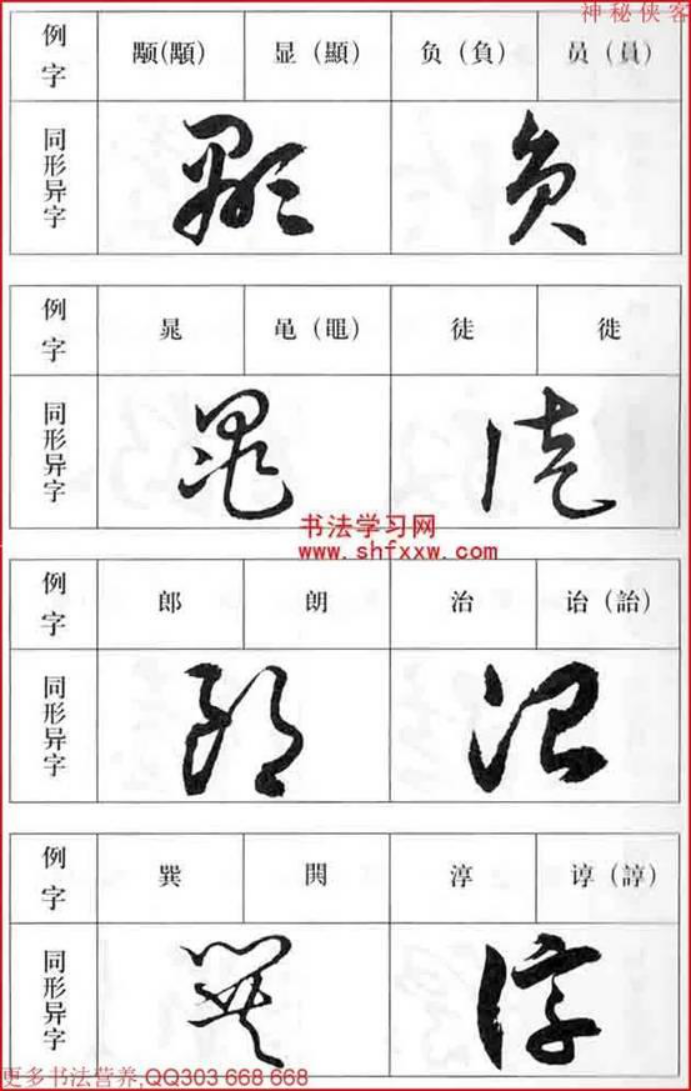 神秘侠客
例字 颙(顒) 显(顯) 负(負) 员(員)
同形异字
例字 晁 黾(黽) 徒 徙
同形异字
书法学习网
www.shfxxw.com
例字 郎 朗 治 诒(詒)
同形异字
例字 巽 閧 淳 谆(諄)
同形异字
更多书法营养,QQ303 668 668